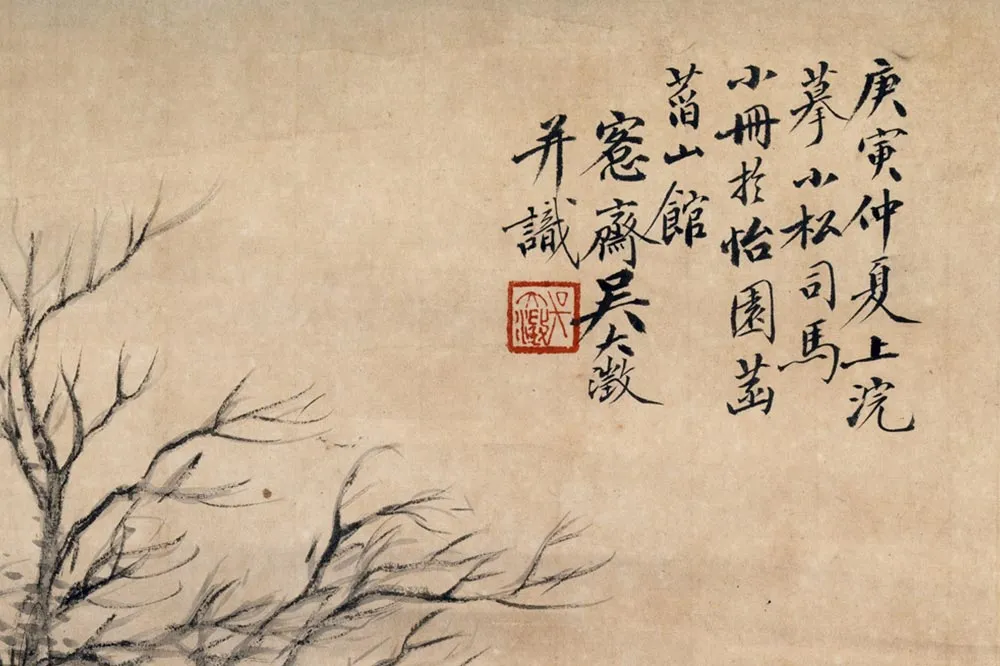 庚寅仲夏上浣
摹小松司馬
小冊於怡園菡
萏山館
愙齋吳大澂
并識
吳大澂